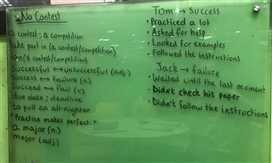 No Contest
a contest: a competition
take part in (a contest/competition)
Successful ↔ unsuccessful (adj.)
Success ↔ failure (n)
Succeed ↔ fail (v)
due date: deadline
to pull an all-nighter
Practice makes perfect.
a major (n)
major (adj)
Tom → Success
• Practiced a lot
• Asked for help
• Looked for examples
• Followed the instructions
Jack → failure
• Waited until the last moment
• Didn't check his paper
• Didn't follow the instructions